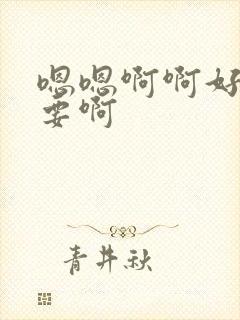 嗯嗯啊啊好
要啊
青井秋